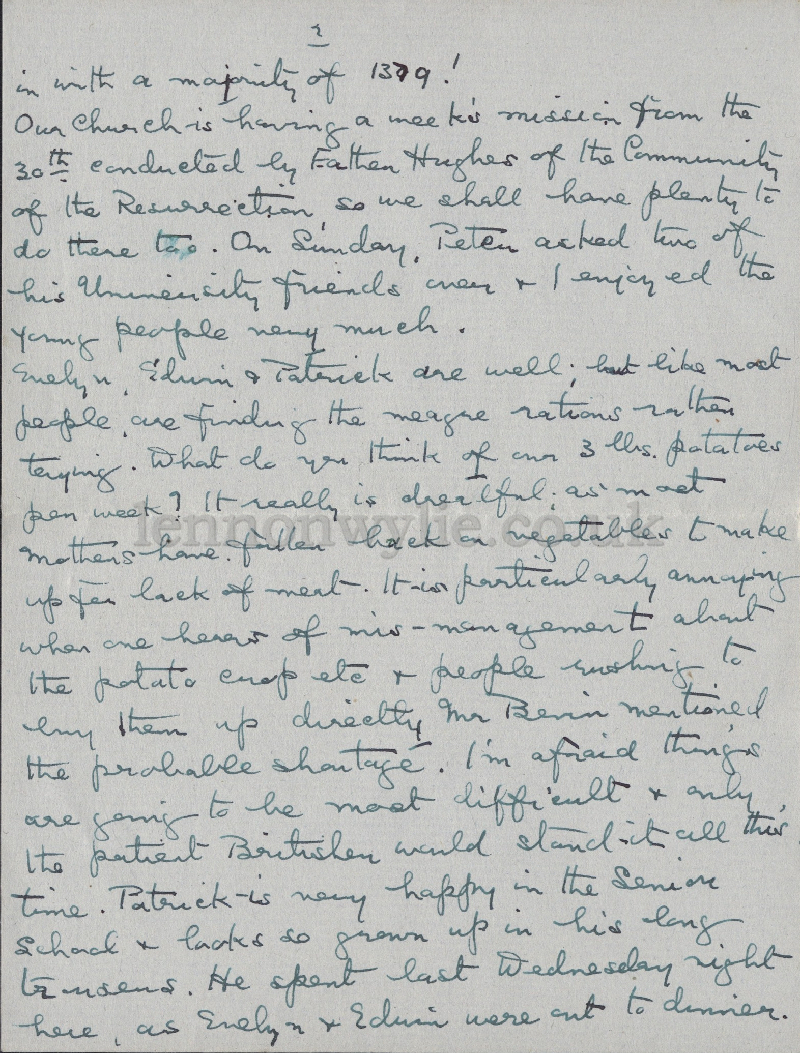 2
in with a majority of 1379!
Our Church is having a week's mission from the
30th conducted by Father Hughes of the Community
of the Resurrection, so we shall have plenty to
do there too. On Sunday, Peter asked two of
his University friends over & I enjoyed the
young people very much.
Evelyn, Edwin & Patrick are well; but like most
people, are finding the meagre rations rather
trying. What do you think of our 3 lbs. potatoes
per week? It really is dreadful; as most
mothers have fallen back on vegetables to make
lennonwylie.co.uk
up for lack of meat. It is particularly annoying
when one hears of mis-management about
the potato crop etc & people rushing to
buy them up directly Mr Bevin mentioned
the probable shortage. I'm afraid things
are going to be most difficult & only
the patient Britisher would stand it all this
time. Patrick is very happy in the Senior
School & looks so grown up in his long
trousers. He spent last Wednesday night
here, as Evelyn & Edwin were out to dinner.